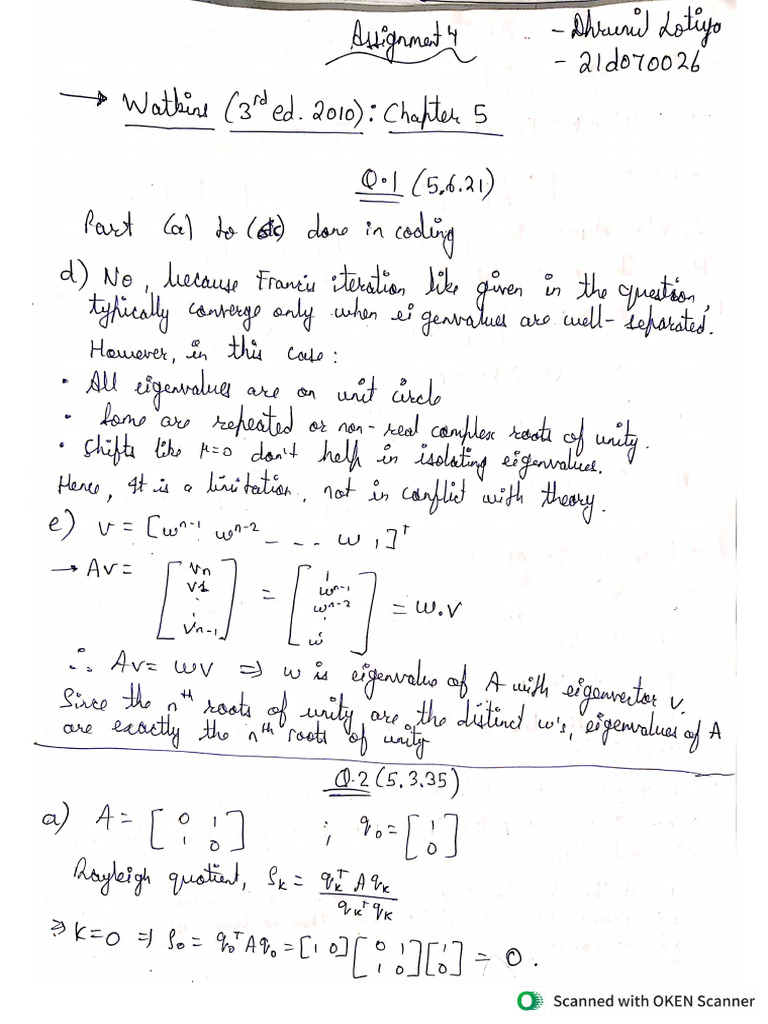 Assignment 4
- Dhrunil Lotiya
- 21d070026
→ Watkins (3rd ed. 2010): Chapter 5
Q.1 (5.6.21)
Part (a) to (c) done in coding
d) No, because Francis iteration like given in the question,
typically converge only when eigenvalues are well-separated.
However, in this case:
• All eigenvalues are on unit circle
• Some are repeated or non-real complex roots of unity.
• Shifts like μ=0 don't help in isolating eigenvalues.
Hence, It is a limitation, not in conflict with theory.
e) v = [wⁿ⁻¹ wⁿ⁻² _ _ .. w 1]ᵀ
→ Av = [vₙ v1 . . vₙ₋₁] = [1 wⁿ⁻¹ wⁿ⁻² . w] = w.v
∴ Av = wv ⇒ w is eigenvalue of A with eigenvector v.
Since the nᵗʰ roots of unity are the distinct w's, eigenvalues of A
are exactly the nᵗʰ roots of unity
Q.2 (5.3.35)
a) A = [0 1; 1 0] ; q₀ = [1; 0]
Rayleigh quotient, ρₖ = qₖᵀ A qₖ / qₖᵀ qₖ
⇒ K=0 ⇒ ρ₀ = q₀ᵀAq₀ = [1 0] [0 1; 1 0] [1; 0] = 0.
Scanned with OKEN Scanner